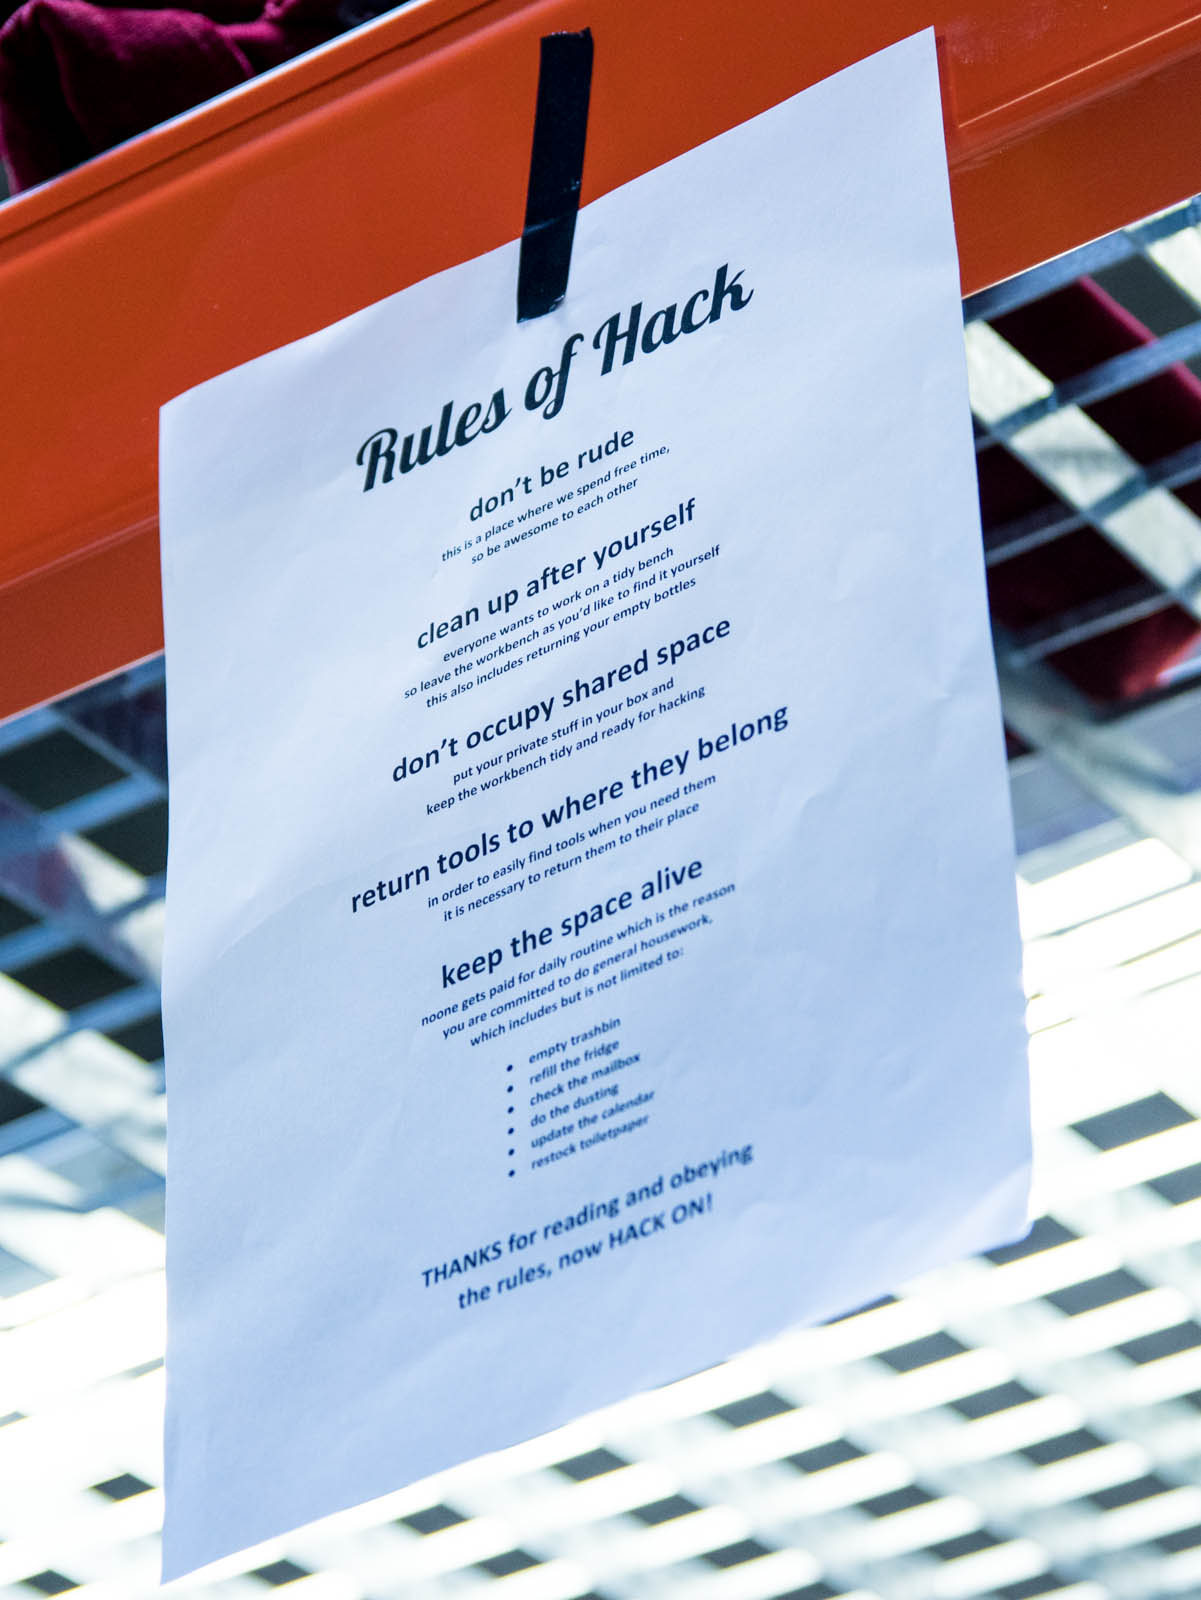 Rules of Hack
don't be rude
this is a place where we spend free time,
so be awesome to each other
clean up after yourself
everyone wants to work on a tidy bench
so leave the workbench as you'd like to find it yourself
this also includes returning your empty bottles
don't occupy shared space
put your private stuff in your box and
keep the workbench tidy and ready for hacking
return tools to where they belong
in order to easily find tools when you need them
it is necessary to return them to their place
keep the space alive
noone gets paid for daily routine which is the reason
you are committed to do general housework,
which includes but is not limited to:
• empty trashbin
• refill the fridge
• check the mailbox
• do the dusting
• update the calendar
• restock toiletpaper
THANKS for reading and obeying
the rules, now HACK ON!